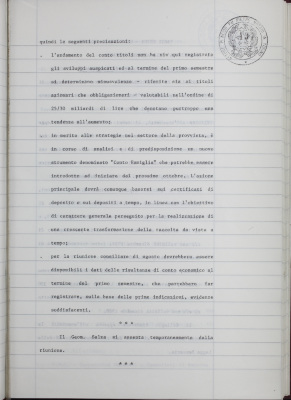 quindi le seguenti precisazioni:
. l'andamento del conto titoli non ha via qui registrato
gli sviluppi auspicati ed al termine del primo semestre
si dovrebbero attraversare - riferite sia ai titoli
azionari che obbligazionari - valutabili nell'ordine di
25/30 miliardi di lire che denotano purtroppo una
tendenza all'aumento;
. in merito alle strategie nel settore della provvista, è
in corso di analisi e di predisposizione un nuovo
strumento denominato "Conto Famiglia" che potrebbe essere
introdotto ad inizio del prossimo ottobre. L'azione
principale dovrà comunque basarsi sui certificati di
deposito e sui depositi a tempo, in linea con l'obiettivo
di carattere generale perseguito per la realizzazione di
una crescente trasformazione della raccolta da vista a
tempo;
. per la riunione consiliare di agosto dovrebbero essere
disponibili i dati delle risultanze di conto economico al
termine del primo semestre, che potrebbero far
registrare, sulla base delle prime indicazioni, evidenze
soddisfacenti.
* * *
Il Geom. si assenta temporaneamente dalla
riunione.
* * *